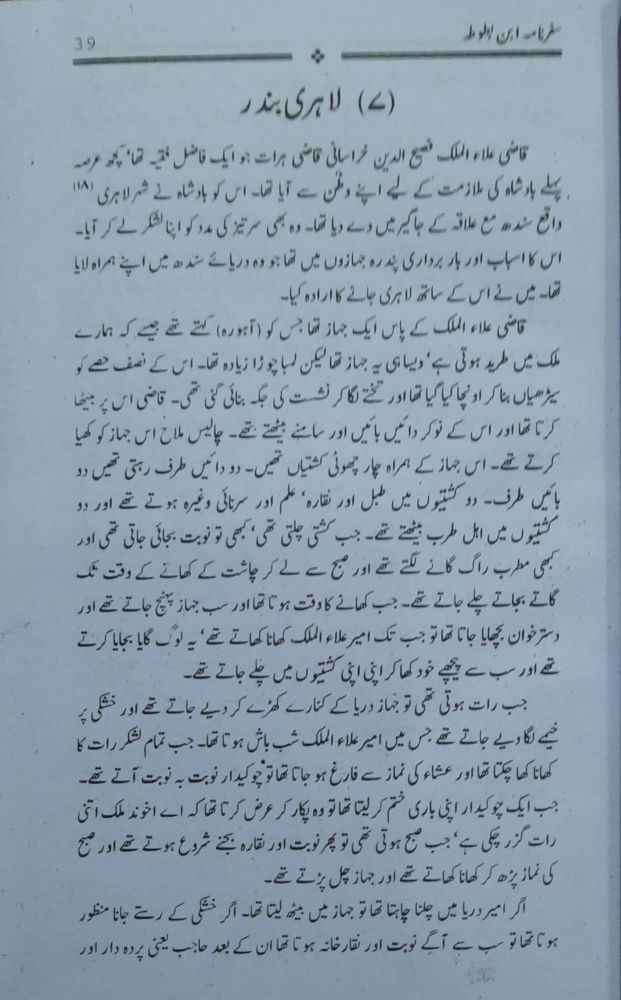 سفرنامہ ابن بطوطہ
39
(۷) لاہری بندر
قاضی علاء الملک فصیح الدین خراسانی قاضی ہرات جو ایک فاضل فقیہ تھا' کچھ عرصہ
پہلے بادشاہ کی ملازمت کے لیے اپنے وطن سے آیا تھا۔ اس کو بادشاہ نے شہر لاہری (۱۸)
واقع سندھ مع علاقہ کے جاگیر میں دے دیا تھا۔ وہ بھی سرتیز کی مدد کو اپنا لشکر لے کر آیا۔
اس کا اسباب اور بار برداری پندرہ جہازوں میں تھا جو وہ دریائے سندھ میں اپنے ہمراہ لایا
تھا۔ میں نے اس کے ساتھ لاہری جانے کا ارادہ کیا۔
قاضی علاء الملک کے پاس ایک جہاز تھا جس کو (آہورہ) کہتے تھے جیسے کہ ہمارے
ملک میں طرید ہوتی ہے' ویسا ہی یہ جہاز تھا لیکن لمبا چوڑا زیادہ تھا۔ اس کے نصف حصے کو
سیڑھیاں بنا کر اونچا کیا گیا تھا اور تختے لگا کر نشست کی جگہ بنائی گئی تھی۔ قاضی اس پر بیٹھا
کرتا تھا اور اس کے نوکر دائیں بائیں اور سامنے بیٹھتے تھے۔ چالیس ملاح اس جہاز کو کھیا
کرتے تھے۔ اس جہاز کے ہمراہ چار چھوٹی کشتیاں تھیں۔ دو دائیں طرف رہتی تھیں دو
بائیں طرف۔ دو کشتیوں میں طبل اور نقارہ' علم اور سرنائی وغیرہ ہوتے تھے اور دو
کشتیوں میں اہل طرب بیٹھتے تھے۔ جب کشتی چلتی تھی' کبھی تو نوبت بجائی جاتی تھی اور
کبھی مطرب راگ گانے لگتے تھے اور صبح سے لے کر چاشت کے کھانے کے وقت تک
گاتے بجاتے چلے جاتے تھے۔ جب کھانے کا وقت ہوتا تھا اور سب جہاز پہنچ جاتے تھے اور
دسترخوان بچھایا جاتا تھا تو جب تک امیر علاء الملک کھانا کھاتے تھے' یہ لوگ گایا بجایا کرتے
تھے اور سب سے پیچھے خود کھا کر اپنی اپنی کشتیوں میں چلے جاتے تھے۔
جب رات ہوتی تھی تو جہاز دریا کے کنارے کھڑے کر دیے جاتے تھے اور خشکی پر
خیمے لگا دیے جاتے تھے جس میں امیر علاء الملک شب باش ہوتا تھا۔ جب تمام لشکر رات کا
کھانا کھا چکتا تھا اور عشاء کی نماز سے فارغ ہو جاتا تھا تو چوکیدار نوبت بہ نوبت آتے تھے۔
جب ایک چوکیدار اپنی باری ختم کر لیتا تھا تو وہ پکار کر عرض کرتا تھا کہ اے اخوند ملک اتنی
رات گزر چکی ہے' جب صبح ہوتی تھی تو پھر نوبت اور نقارہ بجنے شروع ہوتے تھے اور صبح
کی نماز پڑھ کر کھانا کھاتے تھے اور جہاز چل پڑتے تھے۔
اگر امیر دریا میں چلنا چاہتا تھا تو جہاز میں بیٹھ لیتا تھا۔ اگر خشکی کے رستے جانا منظور
ہوتا تھا تو سب سے آگے نوبت اور نقارخانہ ہوتا تھا ان کے بعد حاجب یعنی پردہ دار اور